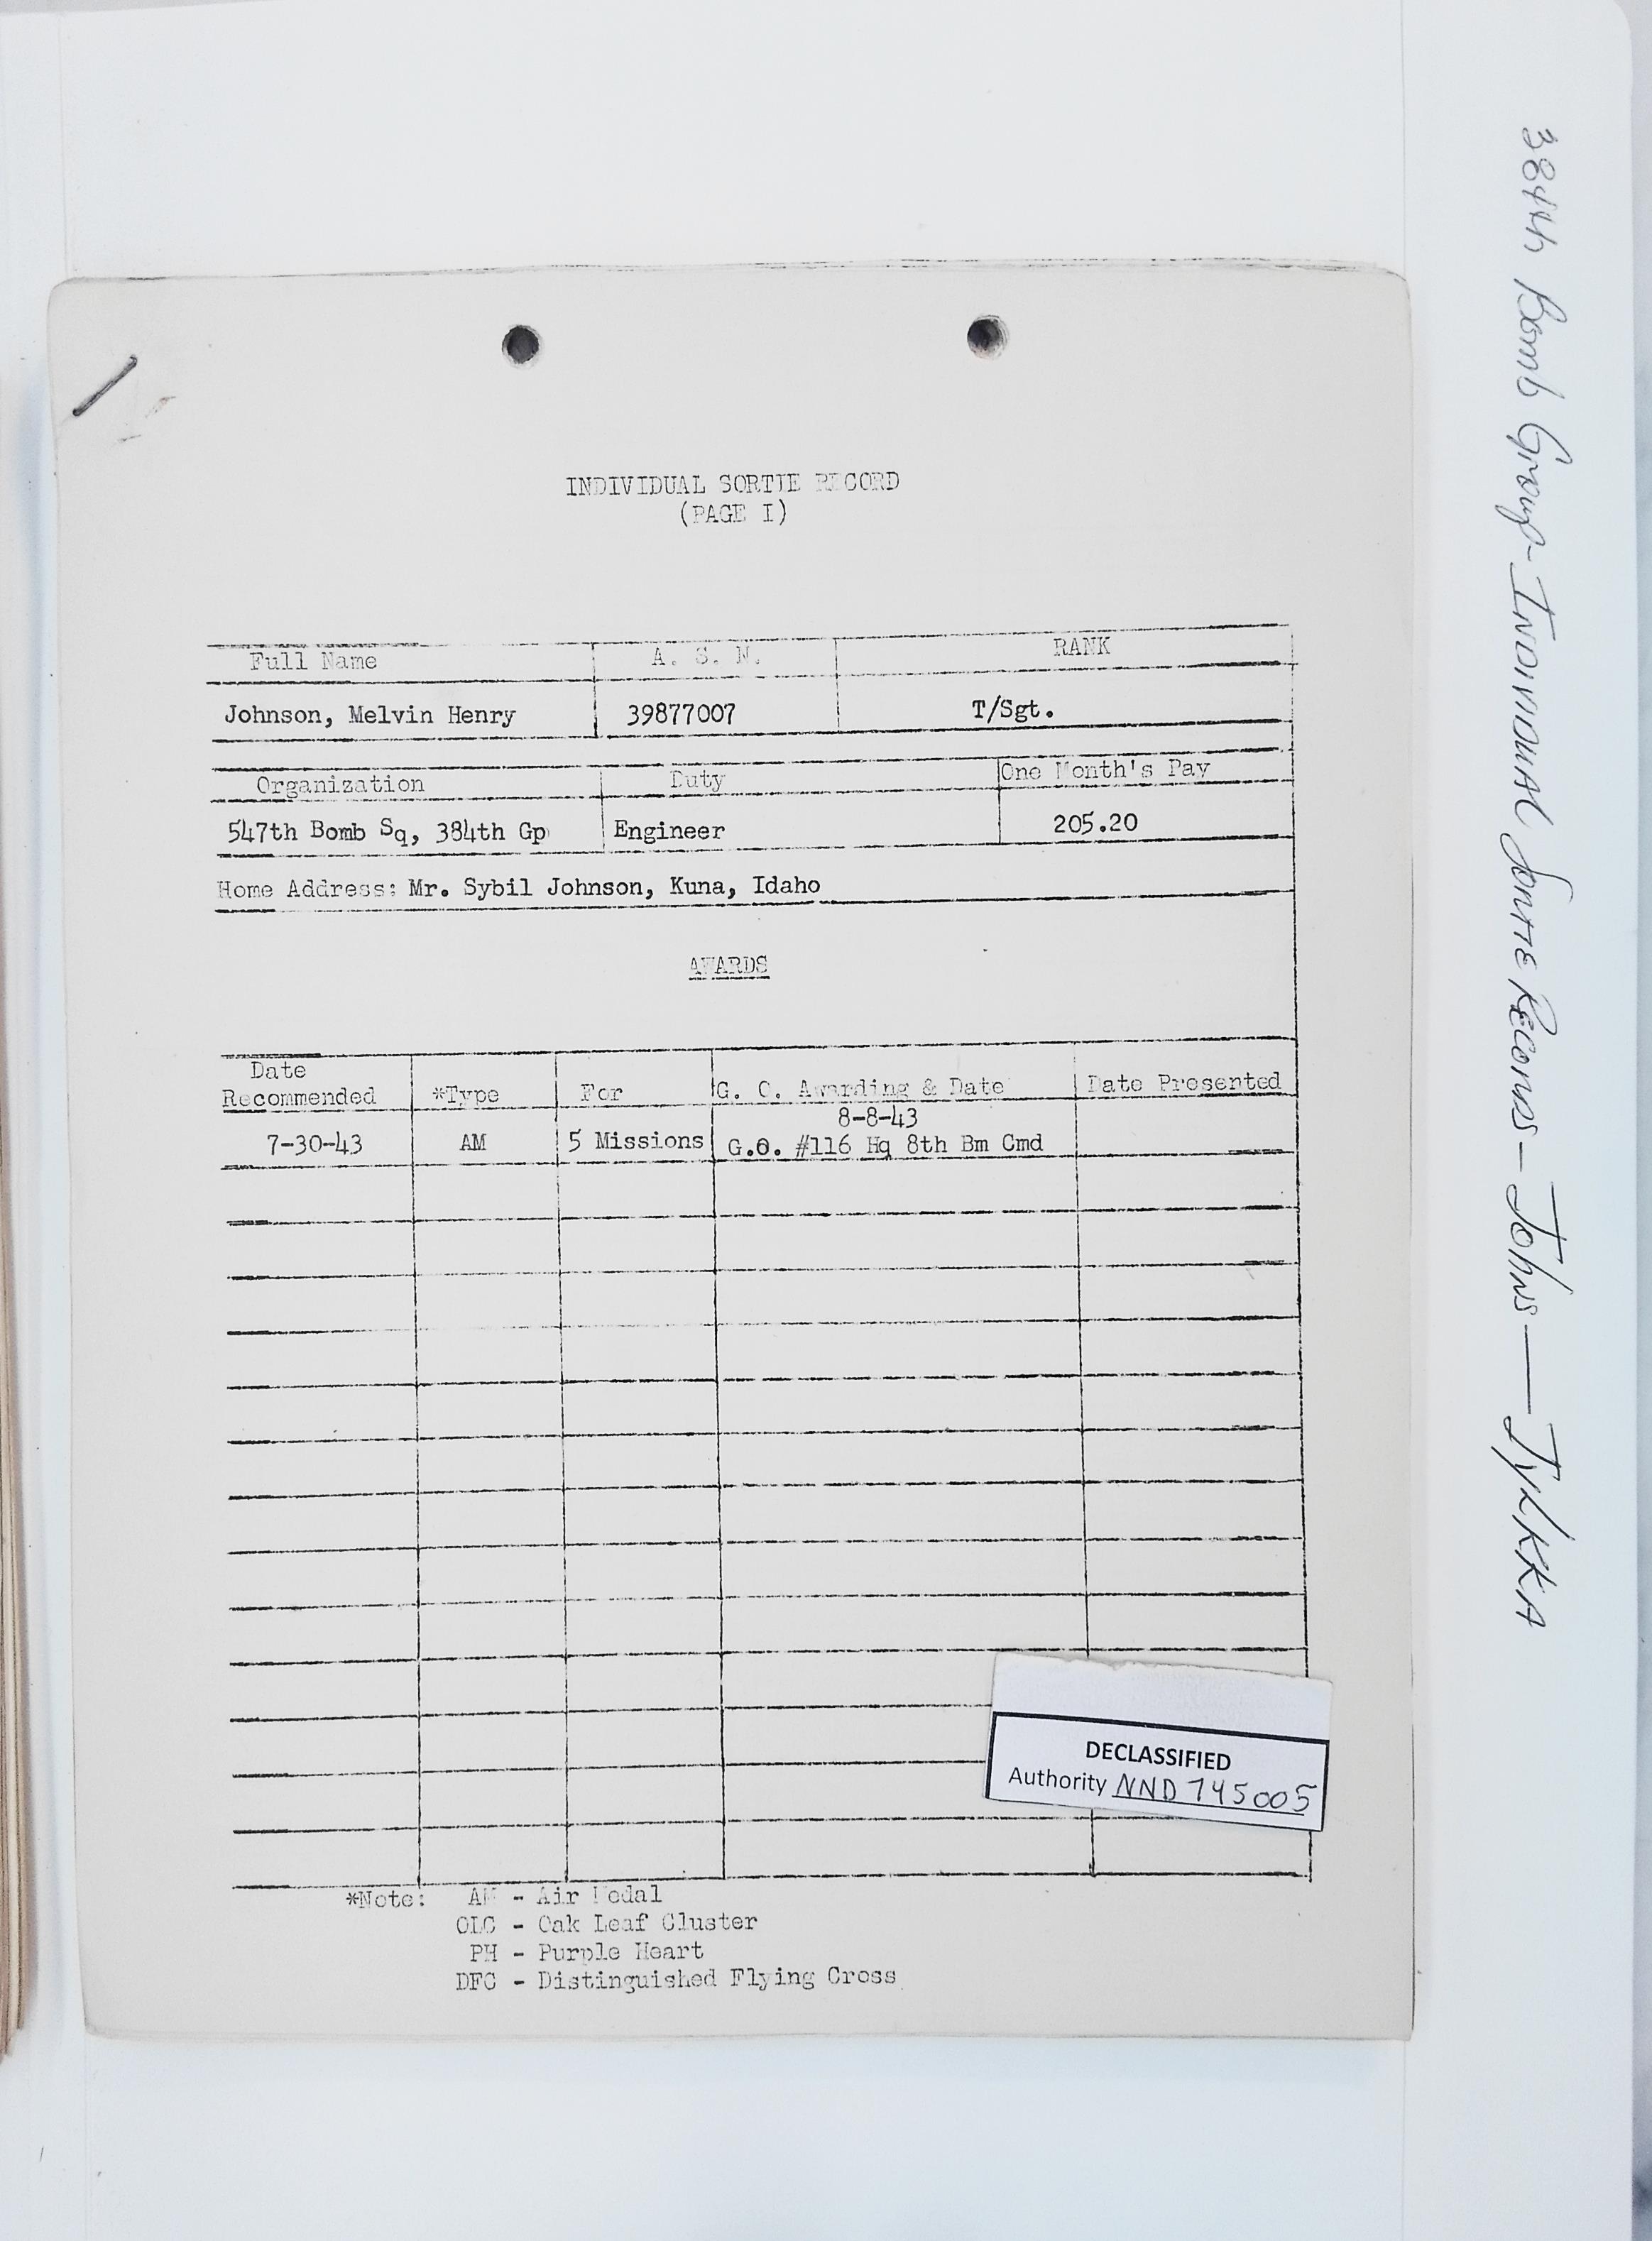 INDIVIDUAL SORTIE RECORD
(PAGE I)
Full Name A. S. N. RANK
Johnson, Melvin Henry 39877007 T/Sgt.
Organization Duty One Month's Pay
547th Bomb Sq, 384th Gp Engineer 205.20
Home Address: Mr. Sybil Johnson, Kuna, Idaho
AWARDS
Date
Recommended *Type For G. O. Awarding & Date Date Presented
8-8-43
7-30-43 AM 5 Missions G.O. #116 Hq 8th Bm Cmd
DECLASSIFIED
Authority NND 745005
*Note: AM - Air Medal
OLC - Oak Leaf Cluster
PH - Purple Heart
DFC - Distinguished Flying Cross
384th Bomb Group - INDIVIDUAL Sortie Records - Johns - Jylkka